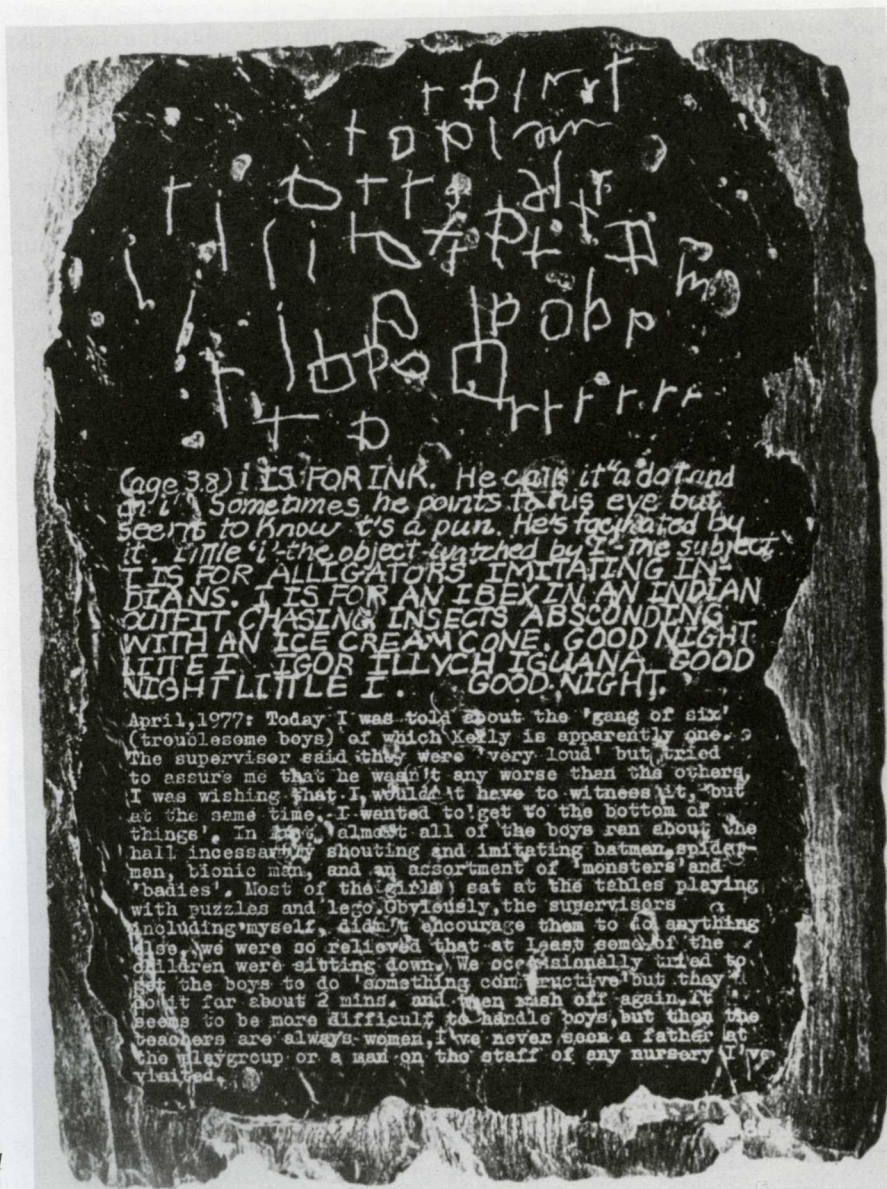 r b l r r t
t o p l
(age 3.8) i IS FOR INK. He calls it "a dot and
an i". Sometimes he points to his eye but
seems to know t's a pun. He's facinated by
it. Little 'i'-the object watched by I-the subject
I IS FOR ALLIGATORS IMITATING IN-
DIANS. I IS FOR AN IBEX IN AN INDIAN
OUTFIT CHASING INSECTS ABSCONDING
WITH AN ICE CREAM CONE. GOOD NIGHT
LITTE I. IGOR ILLYCH IGUANA. GOOD
NIGHT LITTLE I. GOOD NIGHT.
April,1977: Today I was told about the 'gang of six'
(troublesome boys) of which Kelly is apparently one.
The supervisor said they were 'very loud' but tried
to assure me that he wasn't any worse than the others,
I was wishing that I wouldn't have to witness it, but
at the same time, I wanted to 'get to the bottom of
things'. In fact, almost all of the boys ran about the
hall incessantly shouting and imitating batman,spider-
man, bionic man, and an assortment of 'monsters'and
'badies'. Most of the (girls) sat at the tables playing
with puzzles and lego.Obviously,the supervisors
including myself, didn't encourage them to do anything
else, we were so relieved that at least some of the
children were sitting down. We occasionally tried to
get the boys to do 'something constructive'but they'd
do it for about 2 mins. and then rush off again.It
seems to be more difficult to handle boys,but then the
teachers are always women,I've never seen a father at
the playgroup or a man on the staff of any nursery I've
visited.